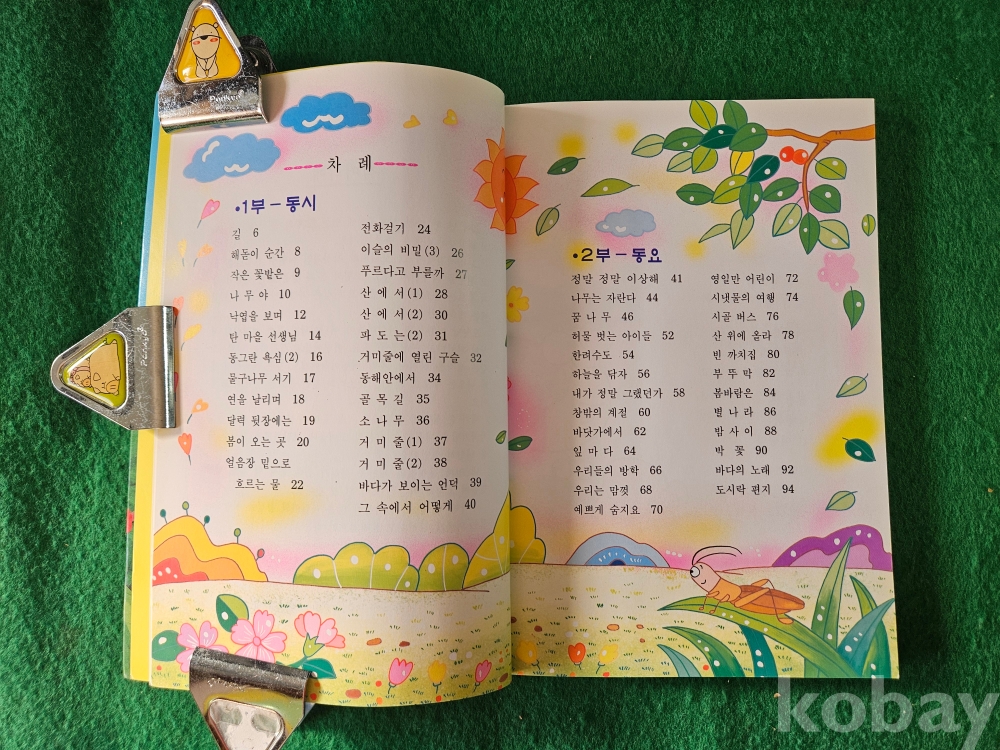 차 례
•1부 – 동시
길 6
해돋이 순간 8
작은 꽃밭은 9
나 무 야 10
낙엽을 보며 12
탄 마을 선생님 14
동그란 욕심(2) 16
물구나무 서기 17
연을 날리며 18
달력 뒷장에는 19
봄이 오는 곳 20
얼음장 밑으로
흐르는 물 22
전화걸기 24
이슬의 비밀(3) 26
푸르다고 부를까 27
산 에 서(1) 28
산 에 서(2) 30
파 도 는(2) 31
거미줄에 열린 구슬 32
동해안에서 34
골 목 길 35
소 나 무 36
거 미 줄(1) 37
거 미 줄(2) 38
바다가 보이는 언덕 39
그 속에서 어떻게 40
•2부 – 동요
정말 정말 이상해 41
나무는 자란다 44
꿈 나 무 46
허물 벗는 아이들 52
한려수도 54
하늘을 닦자 56
내가 정말 그랬던가 58
창밖의 계절 60
바닷가에서 62
잎 마 다 64
우리들의 방학 66
우리는 맘껏 68
예쁘게 숨지요 70
영일만 어린이 72
시냇물의 여행 74
시골 버스 76
산 위에 올라 78
빈 까치집 80
부 뚜 막 82
봄바람은 84
별 나 라 86
밤 사 이 88
박 꽃 90
바다의 노래 92
도시락 편지 94
kobay